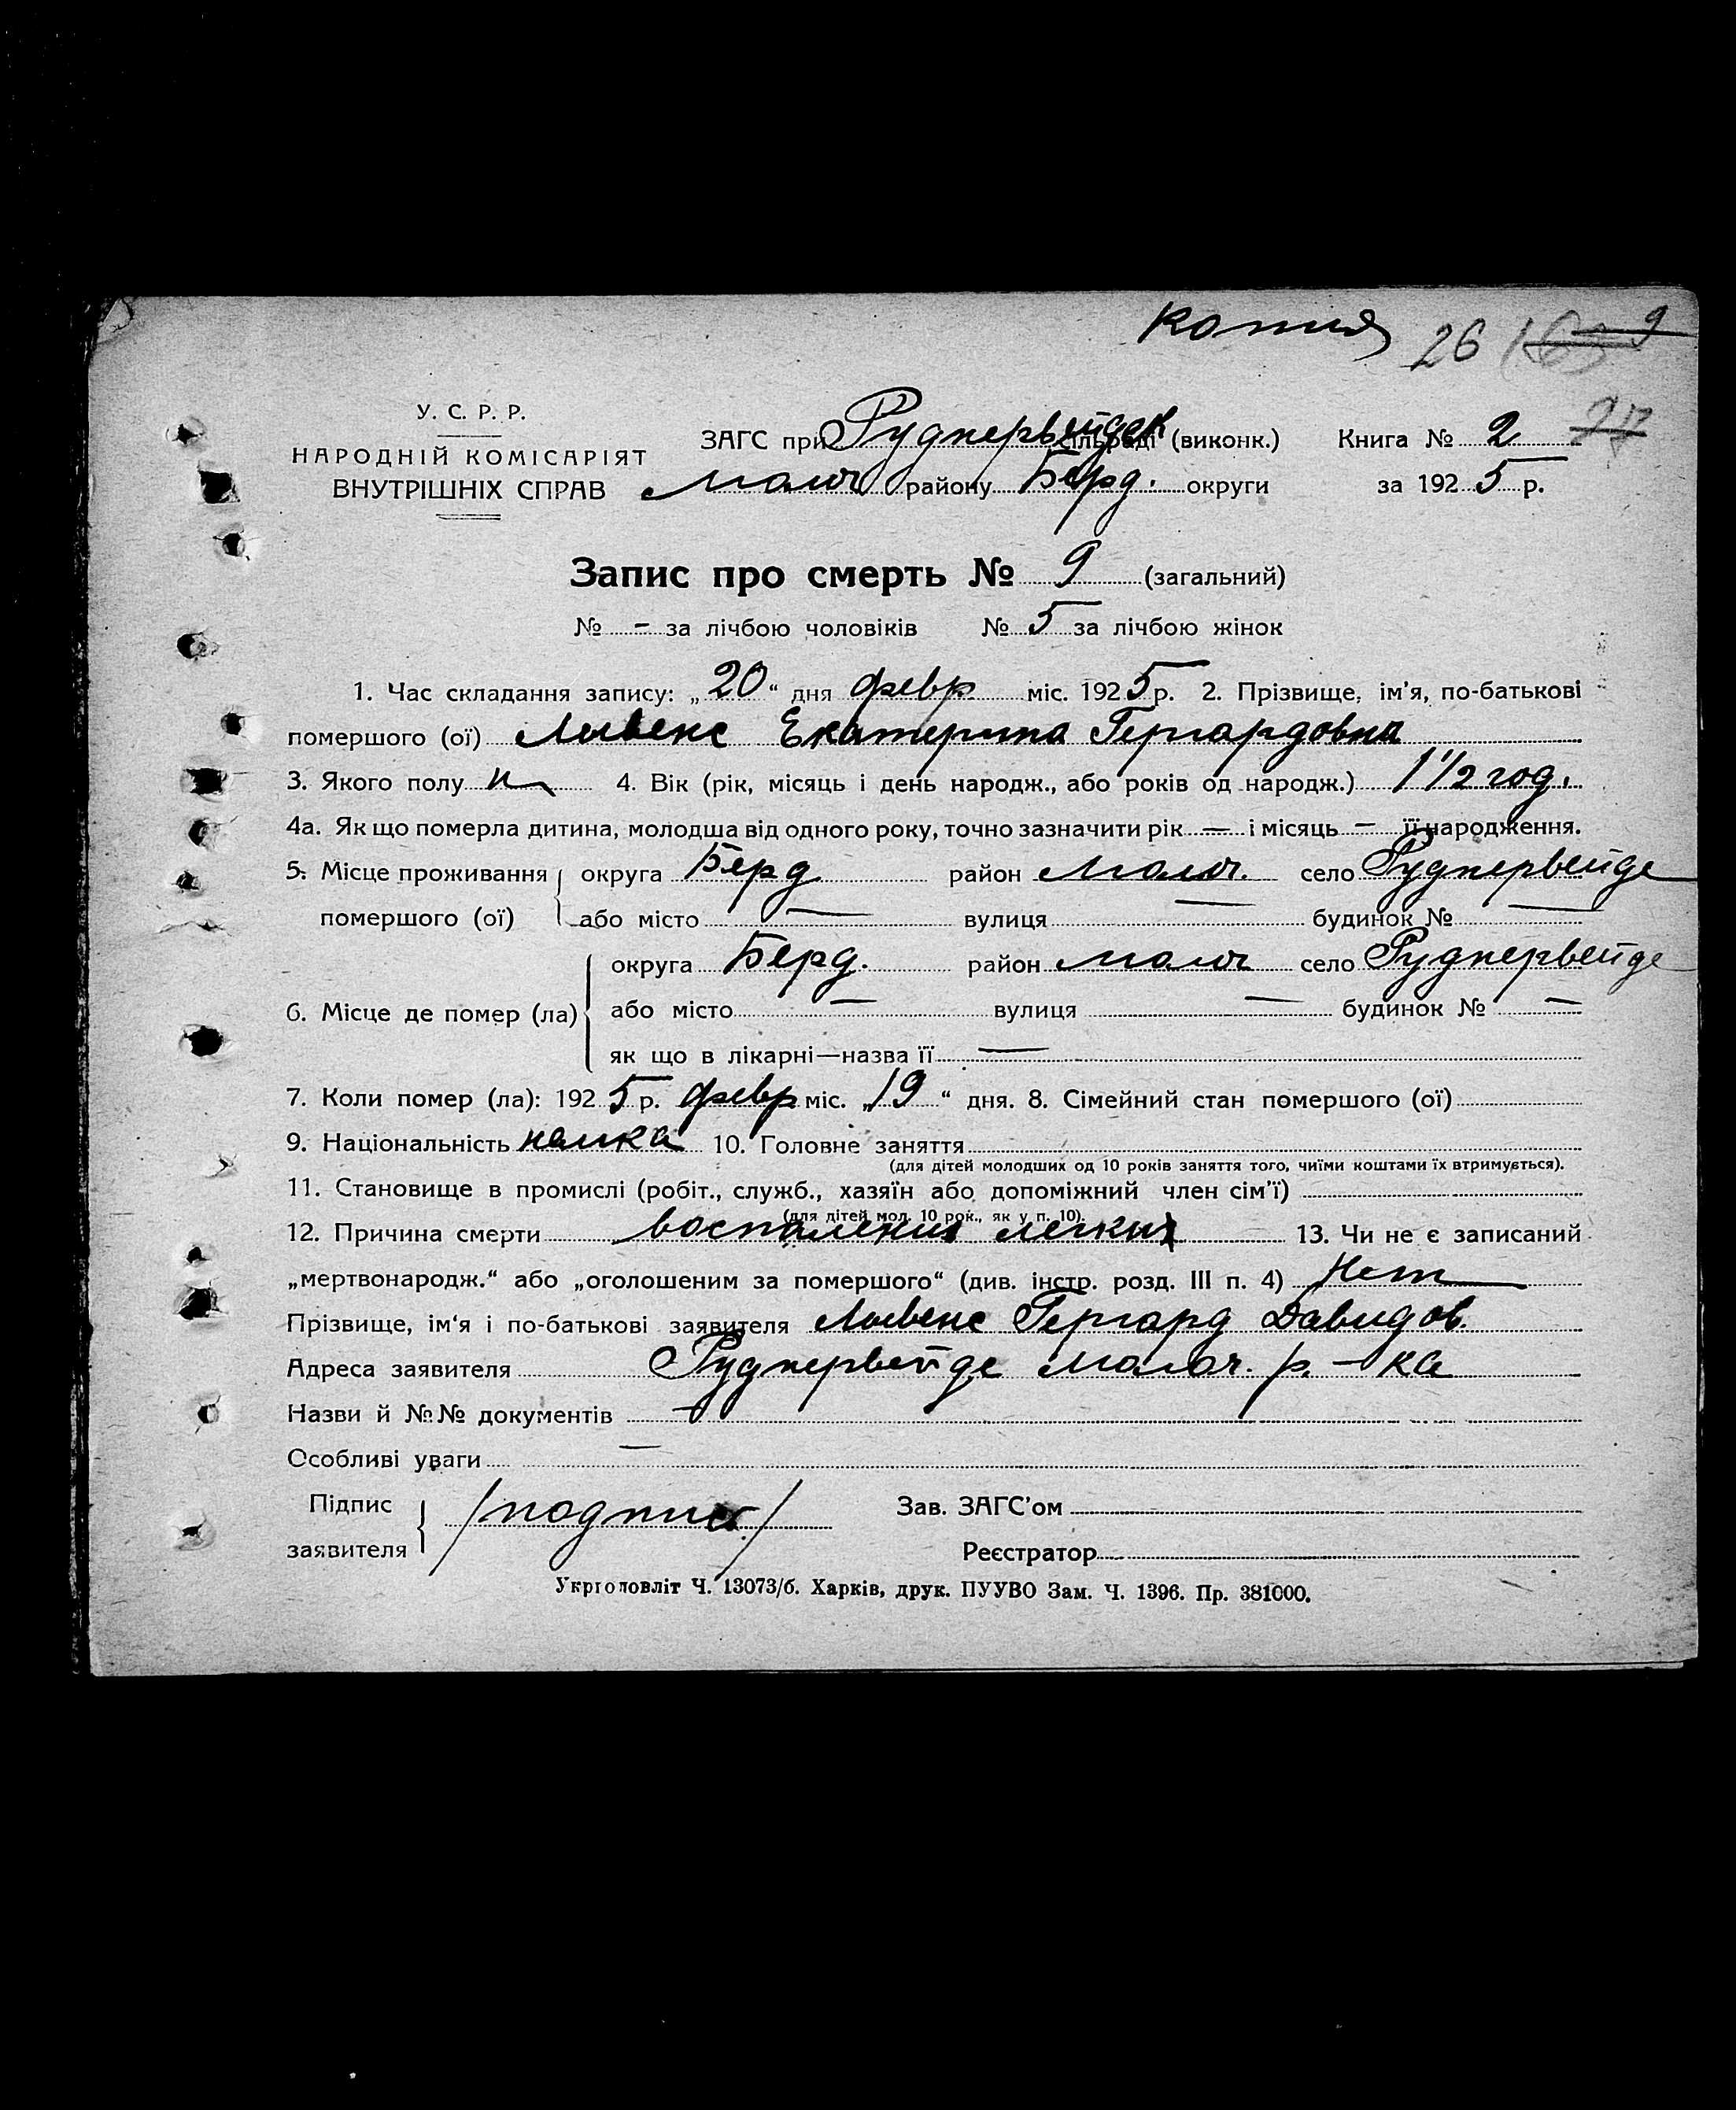 копия 26 163 9
77
У. С. Р. Р.
НАРОДНІЙ КОМІСАРІЯТ
ВНУТРІШНІХ СПРАВ
ЗАГС при Руднервейдск сільраді (виконк.) Книга № 2
Молоч району Берд. округи за 1925 р.
Запис про смерть № 9 (загальний)
№ - за лічбою чоловіків № 5 за лічбою жінок
1. Час складання запису: „20“ дня февр міс. 1925 р. 2. Прізвище, ім’я, по-батькові
помершого (ої) Левенс Екатерина Гергардовна
3. Якого полу 4. Вік (рік, місяць і день народж., або років од народж.) 1 1/2 год.
4а. Як що померла дитина, молодша від одного року, точно зазначити рік — і місяць — її народження.
5. Місце проживання округа Берд район Молоч. село Руднервейде
помершого (ої) або місто — вулиця — будинок № —
округа Берд. район Молоч село Руднервейде
6. Місце де помер (ла) або місто — вулиця — будинок № —
як що в лікарні—назва її —
7. Коли помер (ла): 1925 р. февр міс. „19“ дня. 8. Сімейний стан помершого (ої)
9. Національність немка 10. Головне заняття
(для дітей молодших од 10 років заняття того, чиїми коштами їх втримується).
11. Становище в промислі (робіт., служб., хазяїн або допоміжний член сім’ї)
(для дітей мол. 10 рок., як у п. 10).
12. Причина смерти воспаления легких 13. Чи не є записаний
„мертвонародж.“ або „оголошеним за помершого“ (див. інстр. розд. III п. 4) Нет
Прізвище, ім‘я і по-батькові заявителя Левенс Гергард Давидов.
Адреса заявителя Руднервейде Молоч. р.-ка
Назви й №№ документів —
Особливі уваги —
Підпис /подпись/ Зав. ЗАГС’ом
заявителя Реєстратор
Укрголовліт Ч. 13073/б. Харків, друк. ПУУВО Зам. Ч. 1396. Пр. 381000.